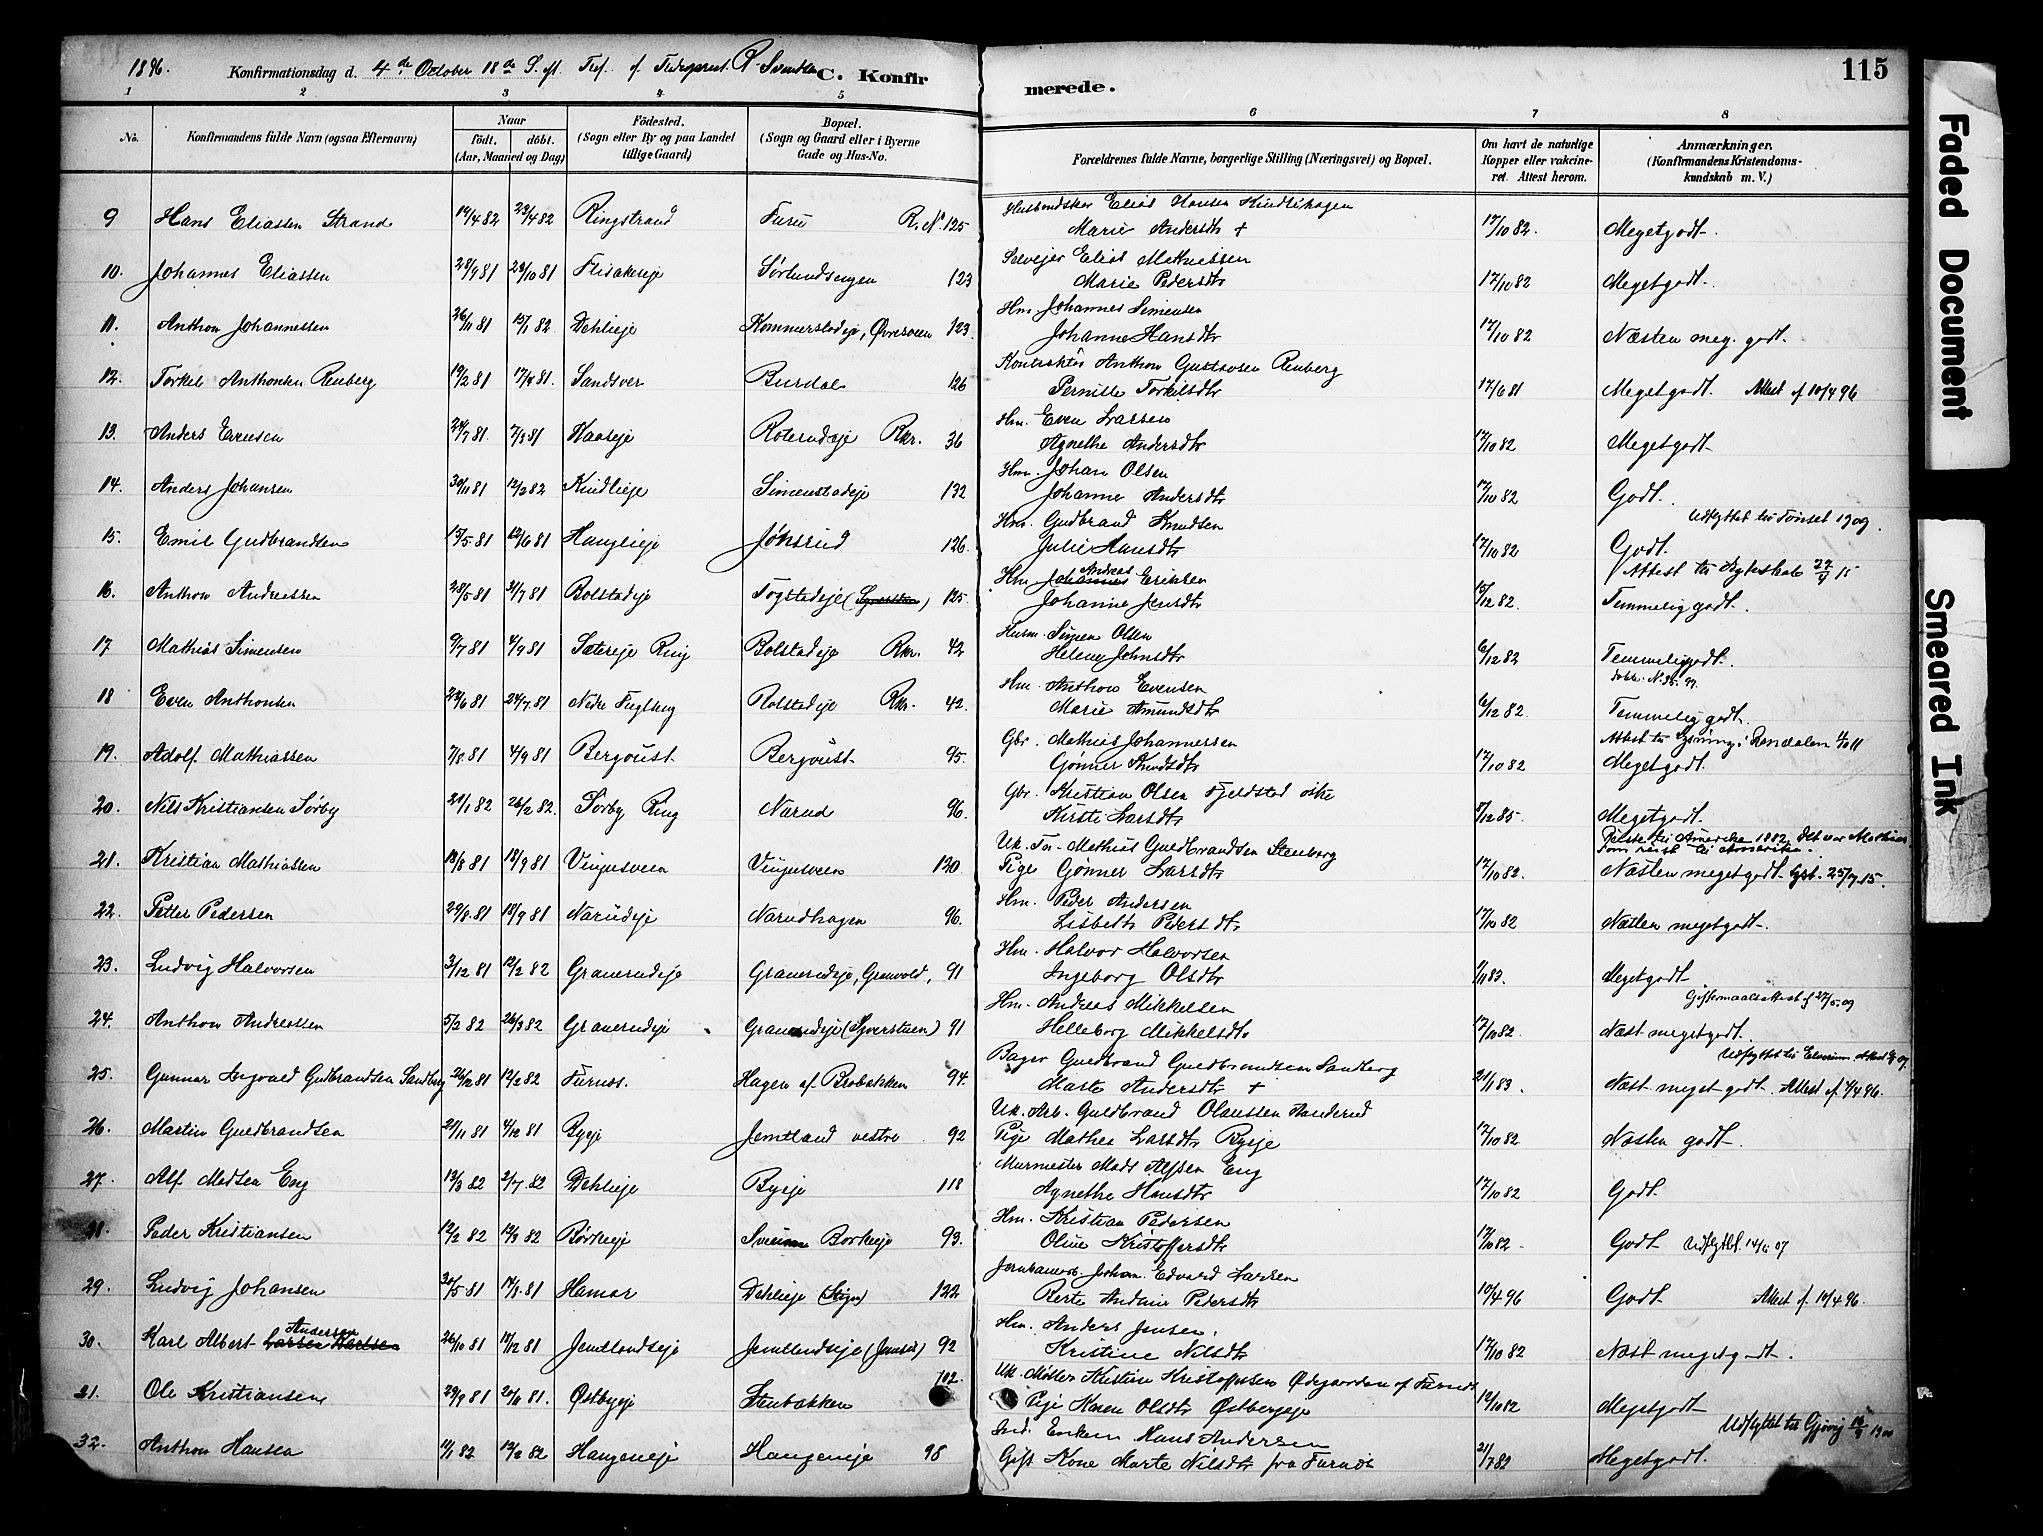 1896. Konfirmationsdag d. 4de October 18de S. eft. Tref. C. Konfir
merede. 115
1 2 3 4 5 6 7 8
No. Konfirmandens fulde Navn (ogsaa Efternavn) Naar født. døbt. (Aar, Maaned og Dag) Födested. (Sogn eller By og paa Landet tillige Gaard) Bopæl. (Sogn og Gaard eller i Byerne Gade og Hus-No. Forældrenes fulde Navne, borgerlige Stilling (Næringsvei) og Bopæl. Om havt de naturlige Kopper eller vakcineret. Attest herom. Anmærkninger. (Konfirmandens Kristendomskundskab m. V.)
9 Hans Eliassen Strand 19/4 82 29/4 82 Ringstrand Furu R. No 125 Elias Hansen Kindlihagen
Marie Andersdtr + 17/10 82. Megetgodt.
10. Johannes Eliassen 28/9 81 23/10 81 Flisakereje Sørlundsengen 123 Selvejer Elias Mathiessen
Marie Pedersdtr 17/10 82 Megetgodt.
11. Anthon Johannessen 26/11 81 15/1 82 Dehlieje Kommerstadeje, Øvresveen 123. Hm Johannes Simensen
Johanne Hansdtr 17/10 82 Næsten meg. godt.
12. Torkel Anthonsen Renberg 19/2 81 17/4 81. Sandsver Burdal 126 Anthon Gustavsen Renberg
Pernille Torkilsdtr 17/6 81 Megetgodt. Attest f. 10/4 96
13. Anders Evensen 24/7 81. 7/8 81 Kaaseje Roterudeje Rkr. 36 Hm. Even Larsen
Agnethe Andersdtr 17/10 82 Megetgodt
14. Anders Johansen 30/11 81 12/2 82 Kindlieje Simenstadeje 132 Hm. Johan Olsen
Johanne Andersdtr 17/10 82 Godt.
Udflyttet til Tønset 1909.
15. Emil Gudbrandsen 15/5 81 12/6 81 Hauglieje Jønsrud 126. Hm. Gudbrand Knudsen
Julie Hansdtr 17/10 82 Godt.
Attest til Ægteskab
16. Anthon Andreassen 28/5 81 31/7 81 Bolstadeje Togstadeje 125 Hm. Johannes Andreas Eriksen
Johanne Jensdtr 15/12 82. Temmelig godt.
17 Mathias Simensen 9/7 81 4/9 81 Sætereje Ring Bolstadeje Rkr. 42 Husm. Simen Olsen
Helene Johnsdtr 6/12 82 Temmeliggodt.
18 Even Anthonsen 24/6 81 24/7 81 Nedre Fuglseng Rolstadeje Rkr. 42. Hm. Anthon Evensen
Marie Amundsdtr 6/12 82 Temmelig godt.
Attest til Lysning i Rendalen 4/10 11
19. Adolf Mathiassen 7/8 81 4/9 81 Bergoust Bergoust 95. Gbr. Mathias Johannessen
Gønner Knudsdtr 17/10 82 Megetgodt.
20. Nils Kristiansen Sørby 21/1 82 26/2 82. Sørby Ring Narud 96. Gbr. Kristian Olsen Fjeldstad
Kirsti Larsdtr 8/12 85. Megetgodt.
Reiste til Amerika 1882, det var Mathias
som reist til Amerika.
21. Kristian Mathiassen 13/8 81 18/9 81 Vingusveen Vingusveen 120 Uk. Mathias Guldbrandsen Stenberg
Pige Gønner Larsdtr 17/10 82. Næsten megetgodt.
22. Petter Pedersen 29/8 81 18/9 81 Narudeje Narudhagen 96. Hm. Peder Andersen
Lisbeth Pedersdtr 17/10 82 Næsten megetgodt.
23. Ludvig Halvorsen 3/12 81 12/2 82 Graverudeje Graverudeje, Grønvold, 91 Hm. Halvor Halvorsen
Ingeborg Olsdtr 1/11 83. Megetgodt
Giftermaalsattest
24. Anthon Andreassen 5/2 82 26/3 82 Graverudeje Graverudeje (Syverstuen) 91 Hm. Andreas Mikkelsen
Helleborg Mikkelsdtr 17/10 82. Næst megetgodt.
Udflyttet til Elverum
25. Gunnar Ingvald Gudbrandsen Sandberg 26/12 81 12/2 82 Furnes. Hagen af Brobakken 94. Bager Guldbrand Guldbrandsen Sandberg
Marte Andersdtr + 21/1 83. Næst meget godt. Attest f. 9/4 96.
26. Martin Guldbrandsen 27/11 81 4/12 81 Byeje Jemtland vestre 92 Uk. Arb. Guldbrand Olaussen
Pige Mathea Larsdtr Byeje 17/10 82 Næsten godt.
27. Alf Madsen Eng 13/3 82 2/7 82 Dehlieje Byeje 118 Murmester Mads Alfsen Eng
Agnethe Hansdtr 17/10 82 Godt.
28. Peder Kristiansen 12/2 82 12/3 82 Børkeeje Børkeeje 93. Hm. Kristian Pedersen
Oline Kristoffersdtr 17/10 82. Godt Udflyttet. 07
29. Ludvig Johansen 30/5 81 14/8 81 Hamar Dehlieje 122 Johan Edvard Larsen
Berte Andrine Pedersdtr 10/4 96 Godt Attest f. 10/4 96.
30. Karl Albert Andersen 26/10 81 18/12 81 Jemtlandseje Jemtlandseje 92 Hm. Anders Jensen.
Kristine Nilsdtr 17/10 82 Næst megetgodt.
31. Ole Kristiansen 29/9 81 20/11 81. Østbyeje Stenbakken 102. Uk. Møller Kristian Kristoffersen Ødegaarden af Furnes
Pige Karen Olsdtr Østbyeje 12/10 82 Megetgodt.
Udflyttet til Gjøvig
32. Anthon Hansen 11/1 82 12/2 82 Haugeneje Haugeneje 98 Ind. Enkem. Hans Andersen
Gift Kone Marte Nilsdtr fra Furnes 21/7 82 Megetgodt.
Faded Document
Smeared Ink